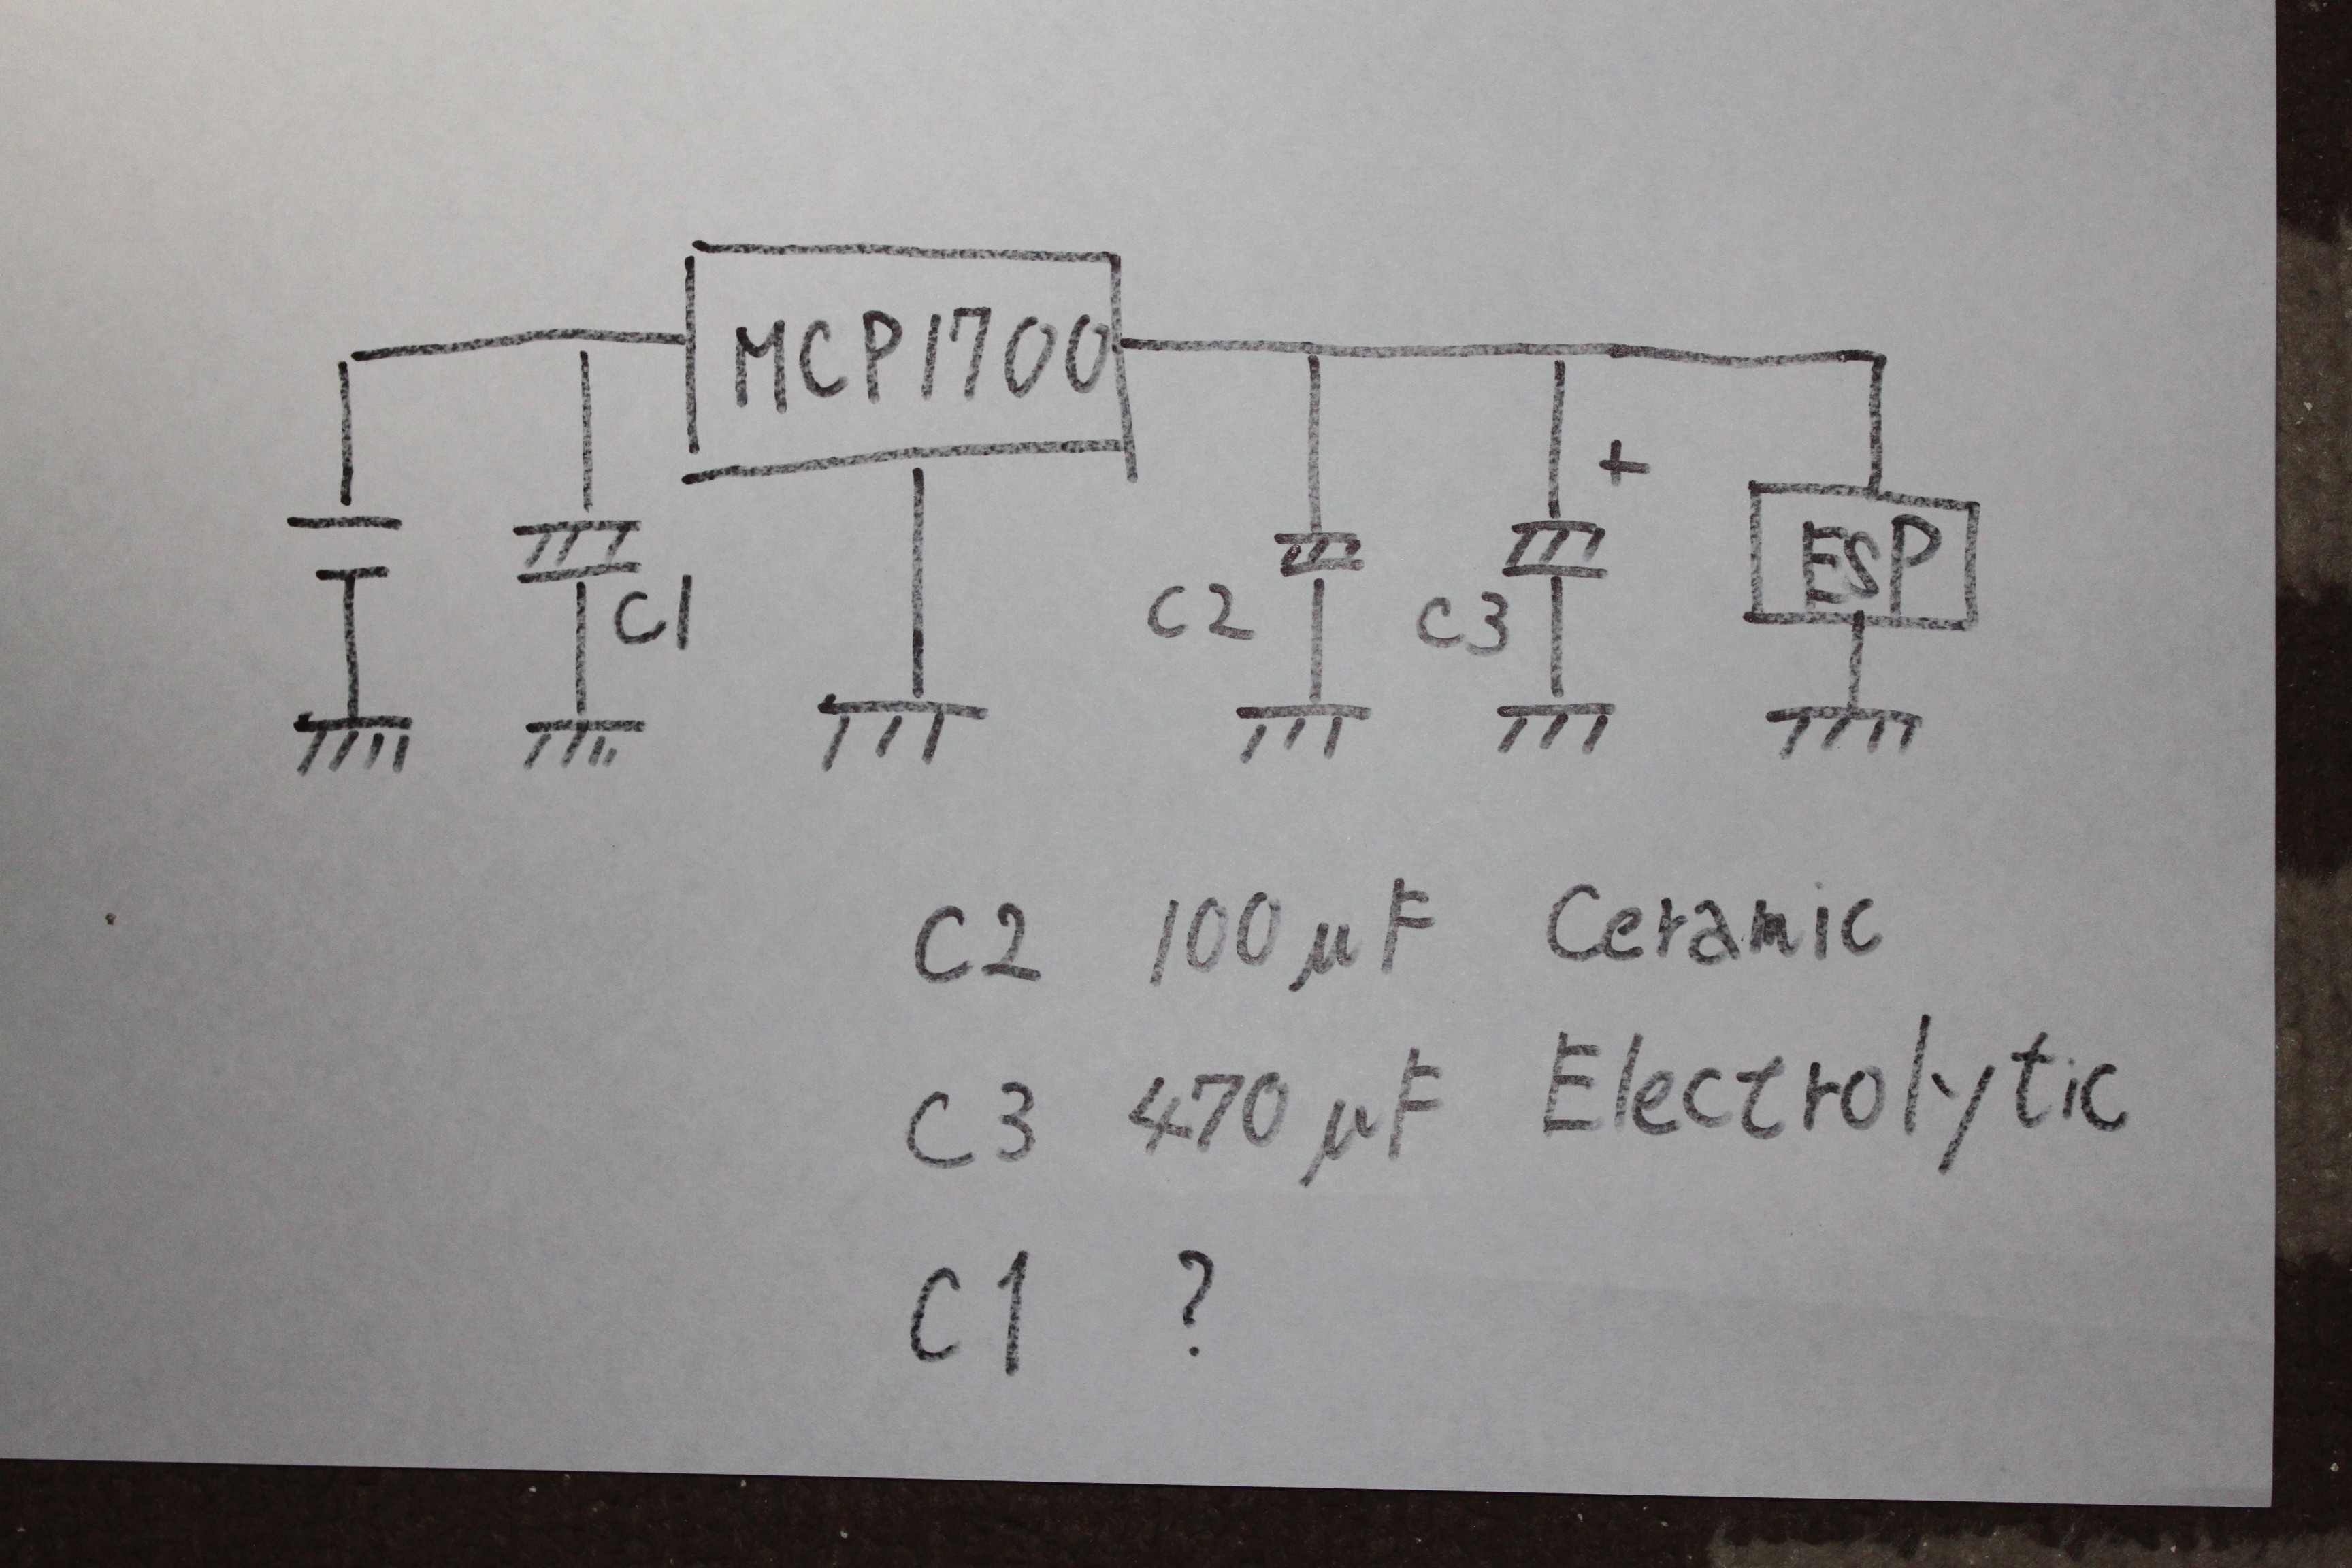 MCP1700
+
ESP
C1
C2
C3
C2 100μF Ceramic
C3 470μF Electrolytic
C1 ?